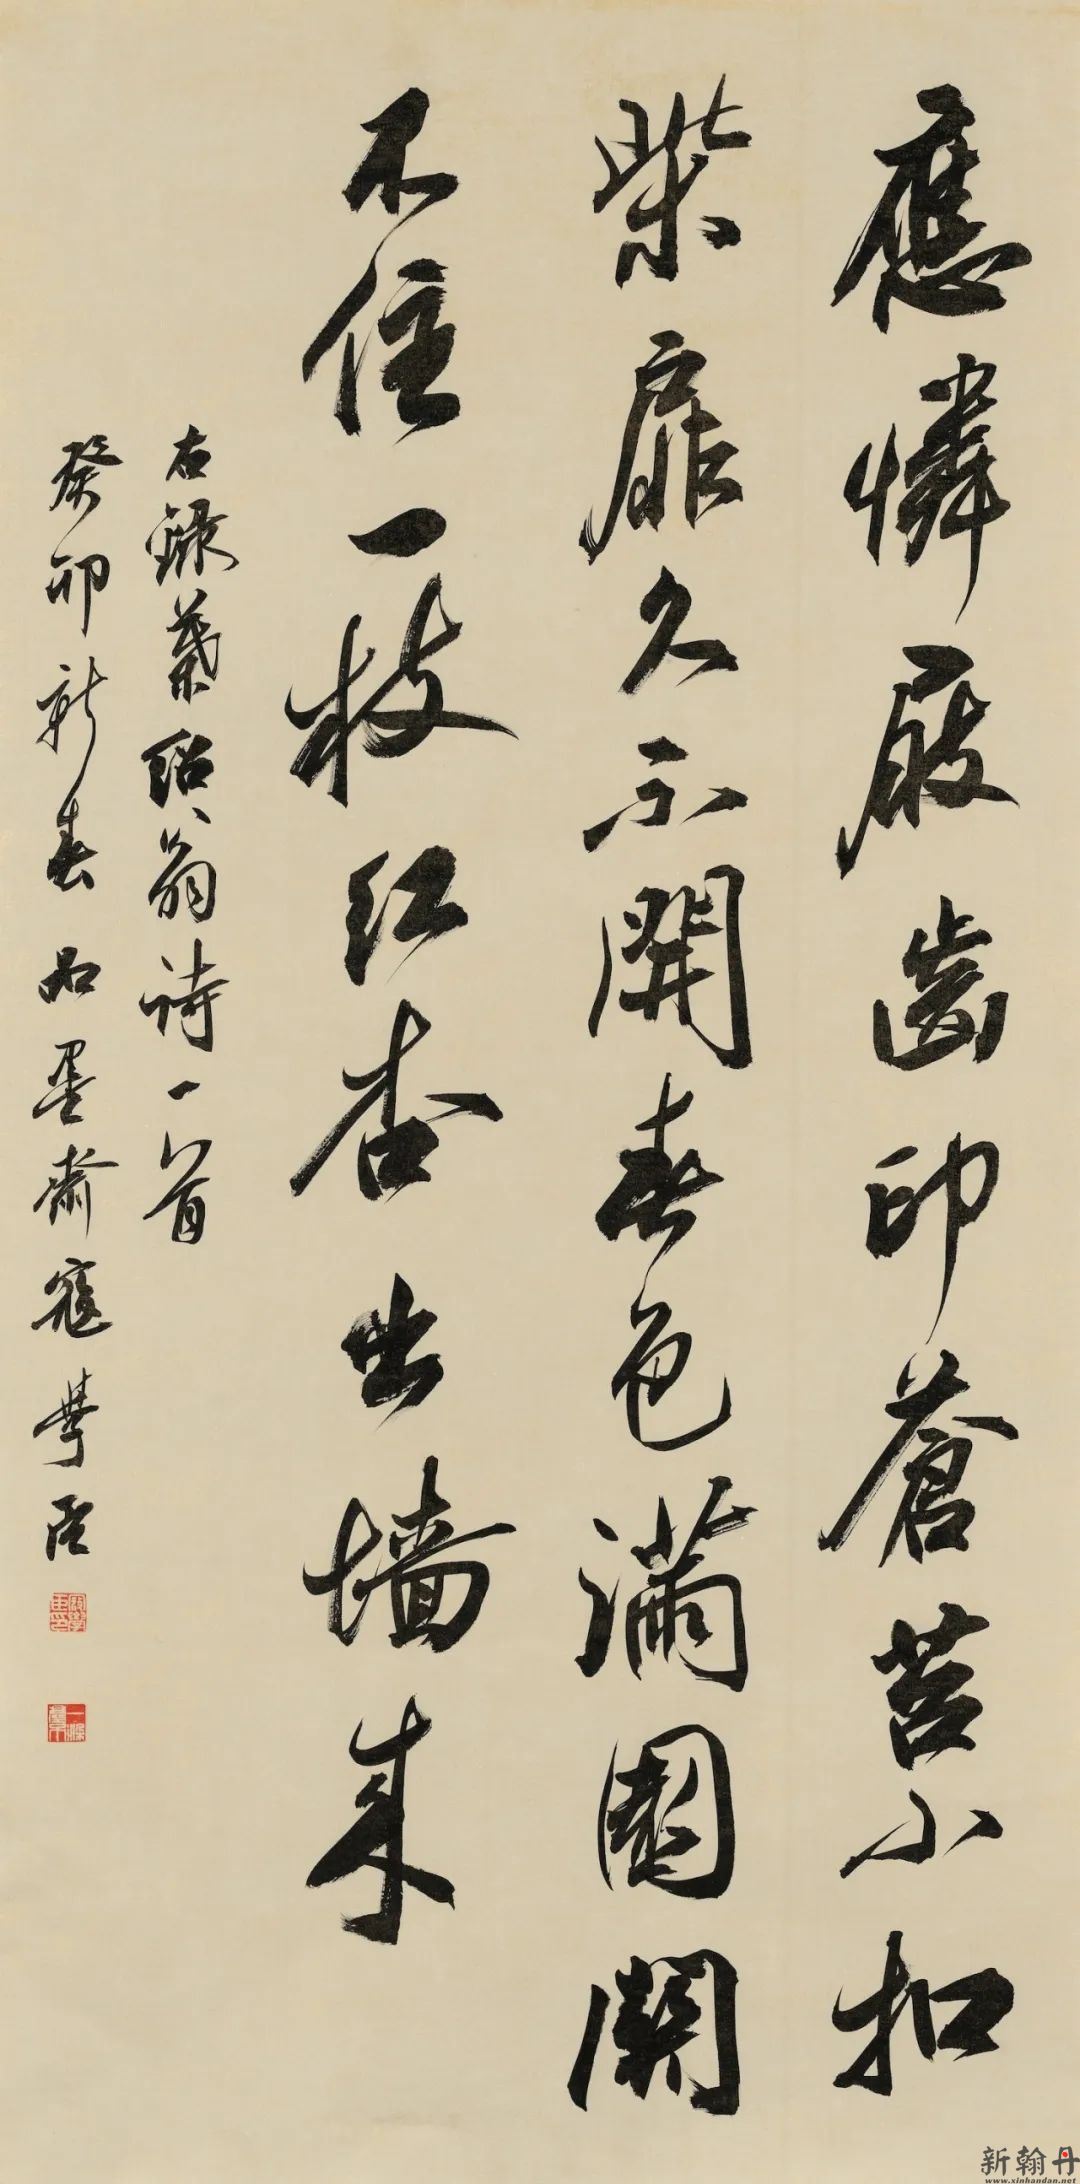 應憐屐齒印蒼苔小扣
柴扉久不開春色滿園關
不住一枝紅杏出墙来
右錄葉紹翁詩一首
癸卯新春如墨齋寇學臣
新翰丹
www.xinhandan.net